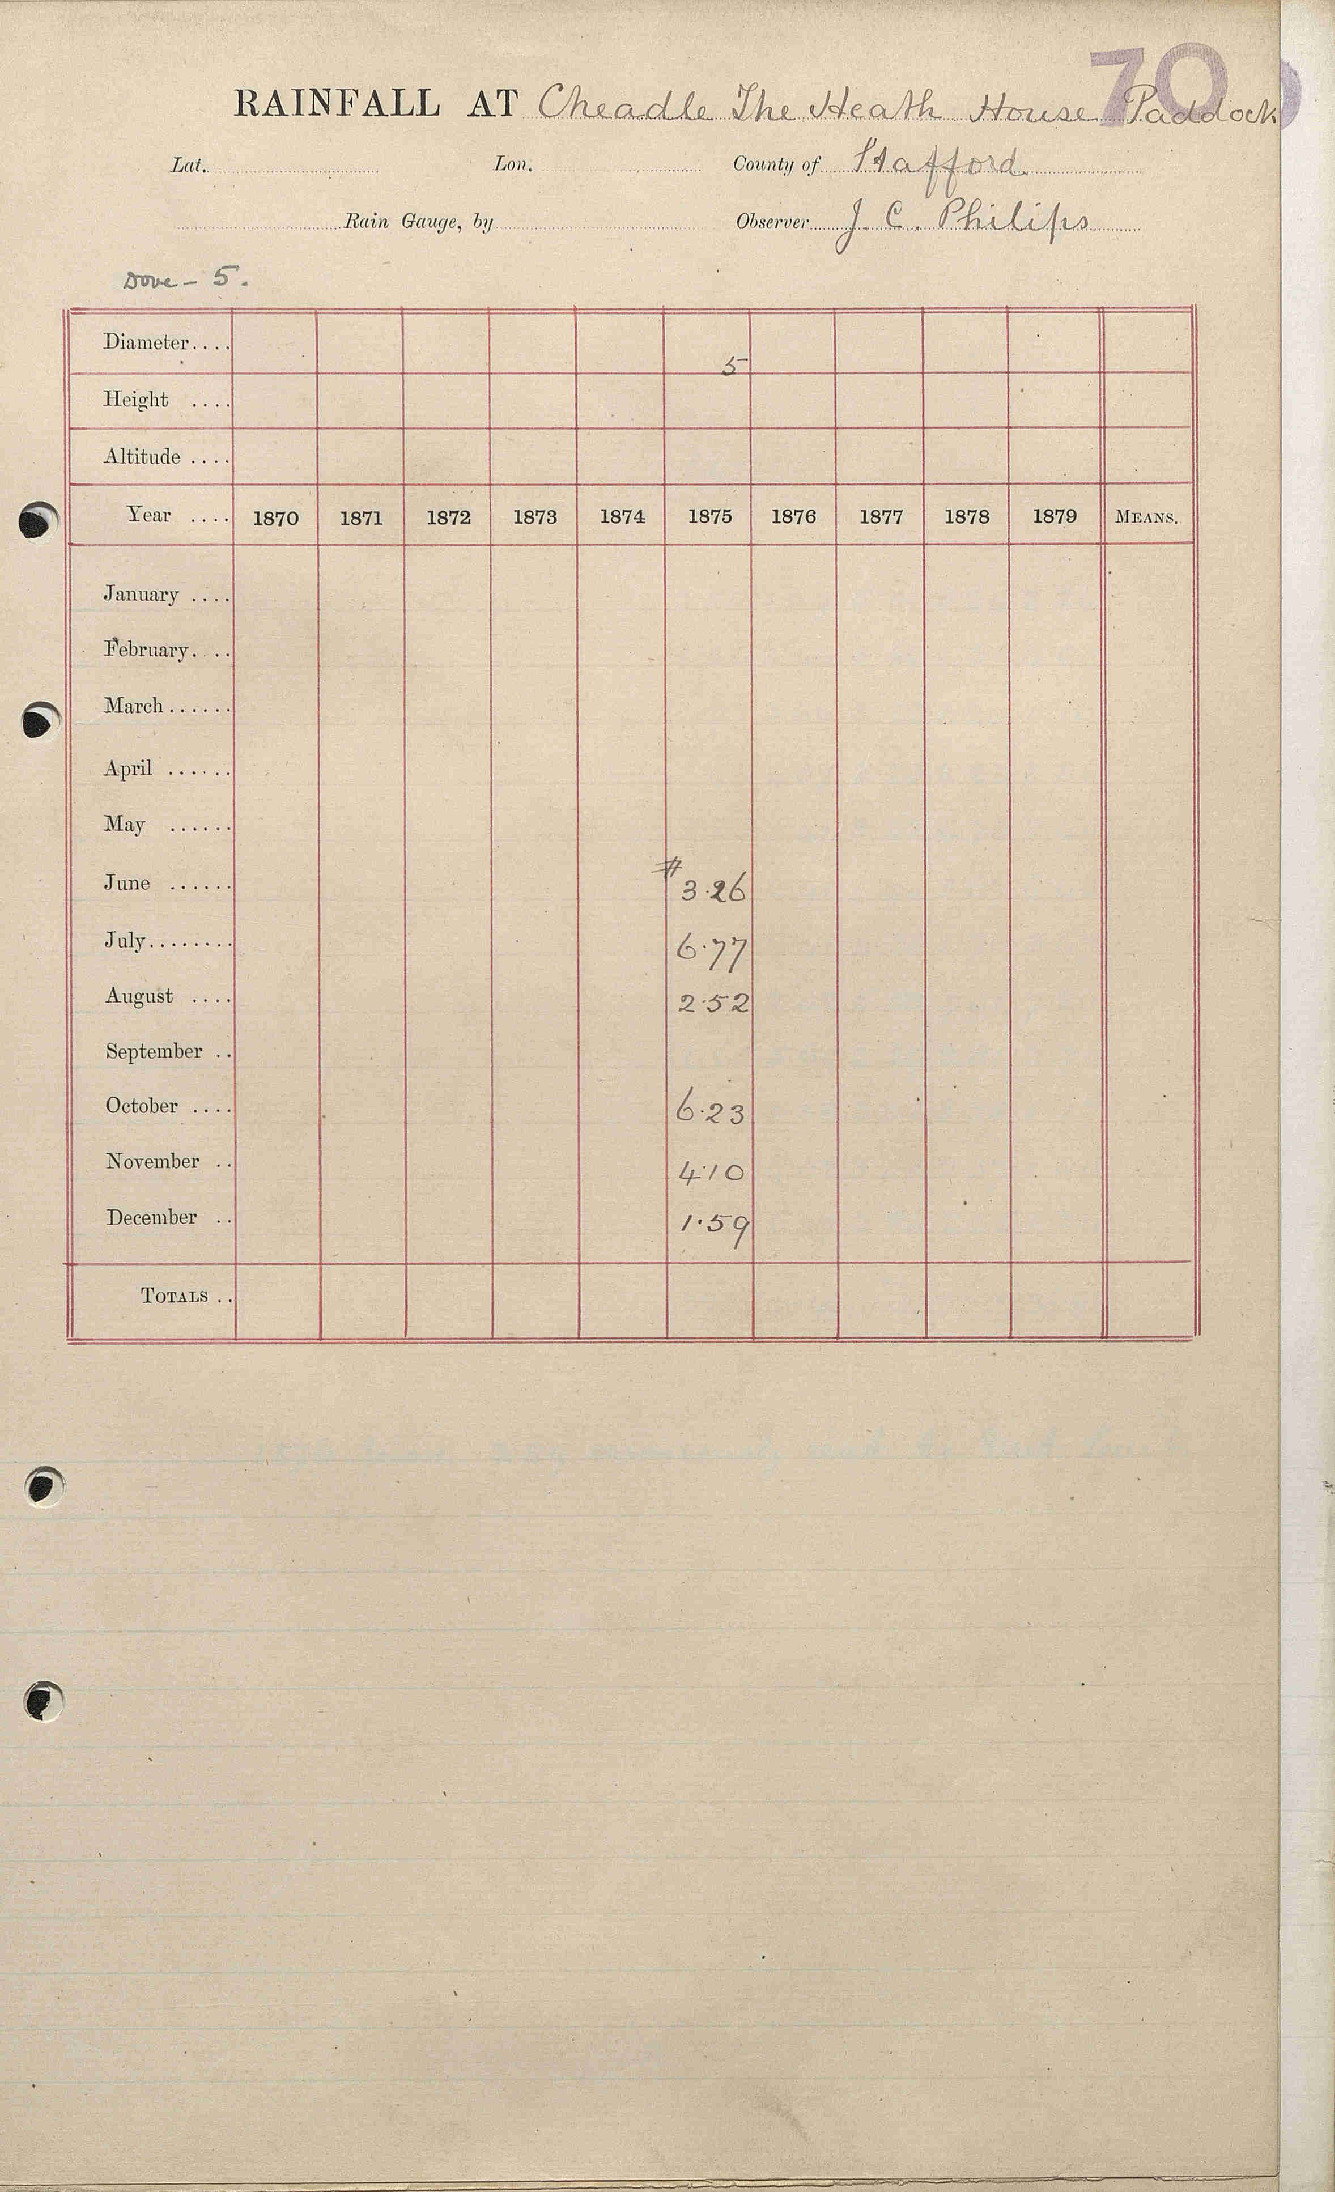 70
RAINFALL AT Cheadle The Heath House Paddock
Lat. Lon. County of Stafford.
Rain Gauge, by Observer J. C. Philips
Dove - 5.
Diameter.... 5
Height ....
Altitude ....
Year .... 1870 1871 1872 1873 1874 1875 1876 1877 1878 1879 MEANS.
January ....
February. ..
March......
April ......
May ......
June ...... # 3.26
July........ 6.77
August .... 2.52
September ..
October .... 6.23
November .. 4.10
December .. 1.59
TOTALS ..